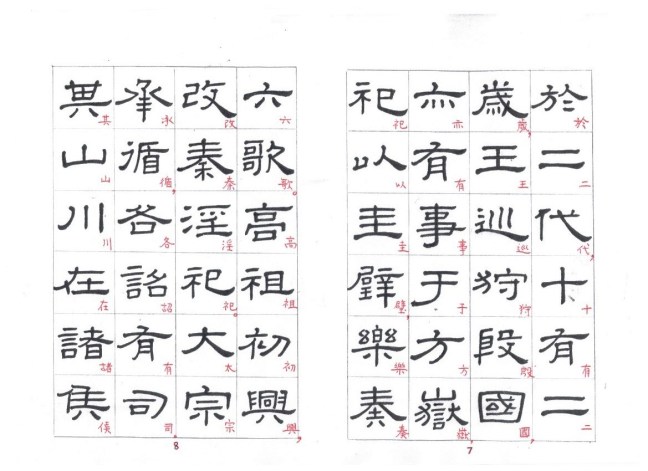 於二代，十有二
歲，王巡狩殷國，
亦有事于方嶽，
祀以圭璧，樂奏
7
六歌。高祖初興，
改秦淫祀。大宗
承循，各詔有司。
其山川在諸侯
8